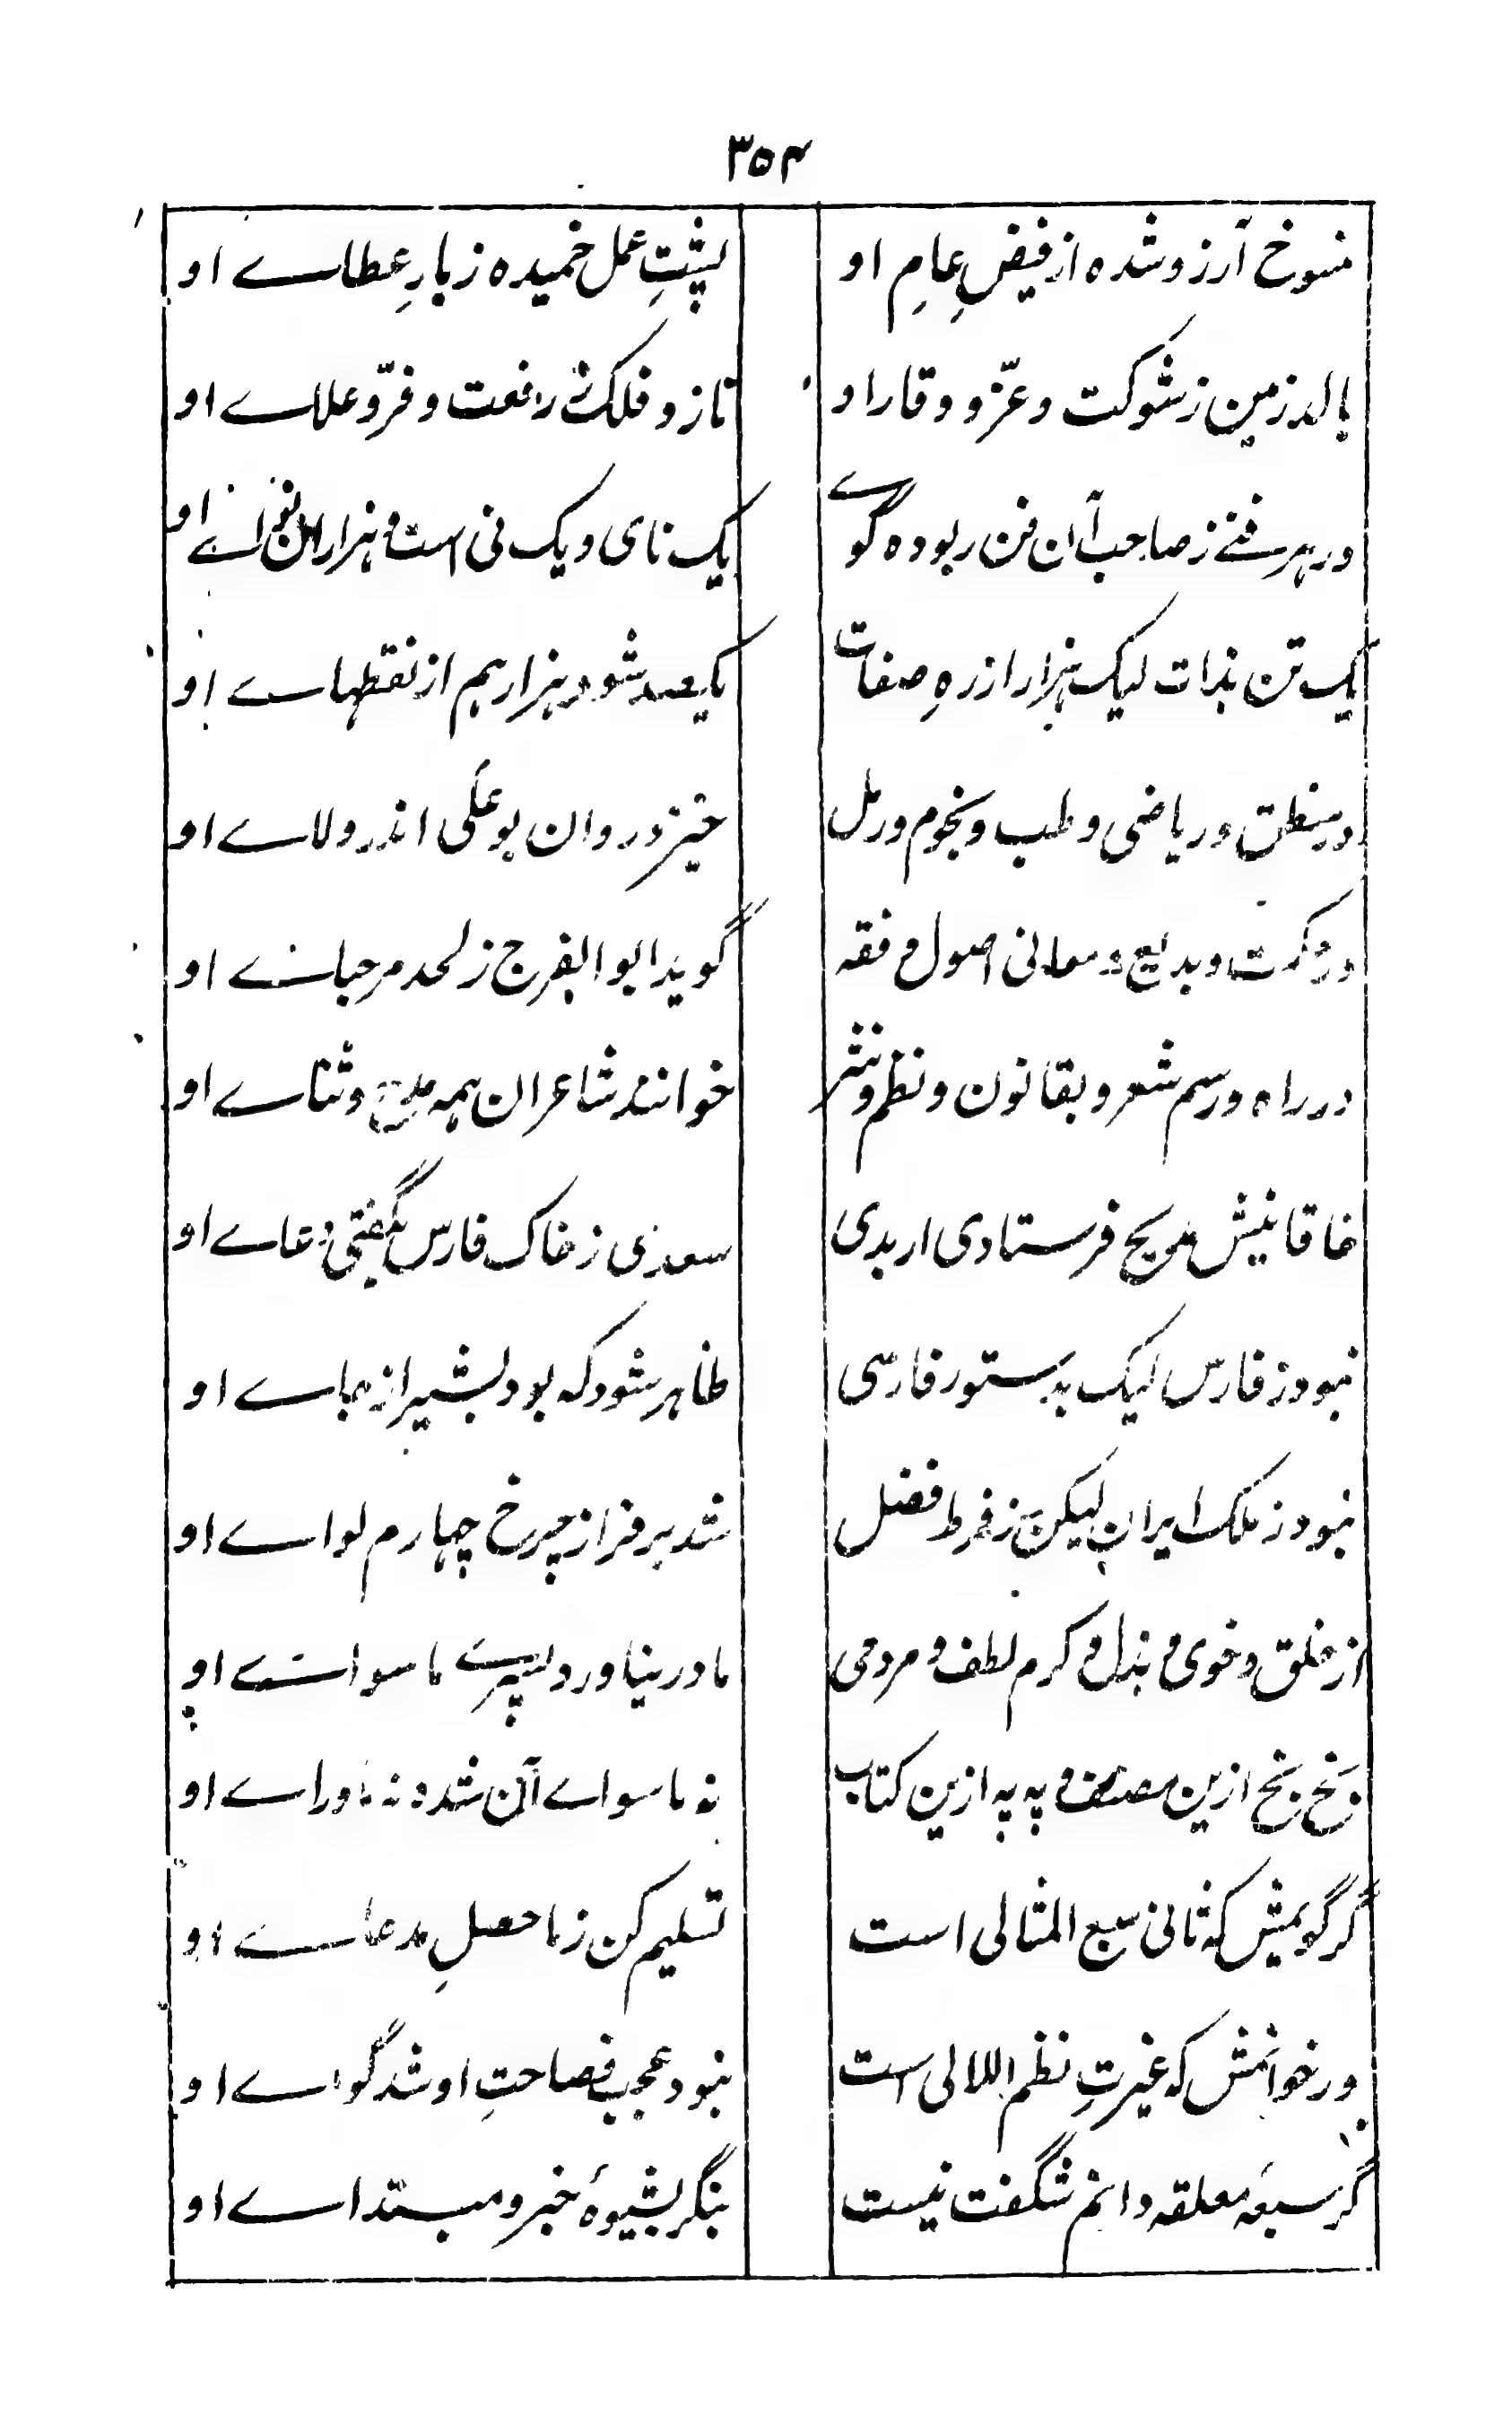 ۳۵۴
منسوخ آرزو شده از فیضِ عامِ او
پشتِ عمل خمیده ز بارِ عطاے او
بالد زمین ز شوکت و عزّ و وقار او
نازد فلک ز رفعت و فرّ و علاے او
در ہر فنے ز صاحب آن فن ربوده گوے
یک نای و یک نی است و ہزاران نواے او
یک تن بذات لیک ہزار از رهِ صفات
یکصد شود ہزار ہم از نقطہاے او
در منطق و ریاضی و طب و نجوم و رمل
خیزد روان بو علی اندر ولاے او
در حکمت و بدیع و معانی اصول و فقہ
گوید ابو الفرج ز لحد مرحباے او
در راه و رسم شعر و بقانون و نظم و نثر
خوانند شاعران ہمہ مدح و ثناے او
خاقانیش مدیح فرستادی ار بدی
سعدی ز خاک فارس بگفتی دعاے او
نبود ز فارس لیک بدستور فارسی
ظاہر شود کہ بود بشیراز جاے او
نبود ز ملک ایران لیکن ز فرط فضل
شد بر فراز چرخ چہارم لواے او
از خلق و خوی و بذل و کرم لطف و مردمی
مادر نیاورد پسرے ماسواے او
بخ بخ ازین مصنف و پہ پہ ازین کتاب
نہ ماسواے آن شده نہ ماوراے او
گر گویمش کہ ثانی سبع المثالی است
تسلیم کن ز ما حصلِ مدعاے او
ور خوانمش کہ غیرتِ نظم اللالی است
نبود عجب فصاحتِ او شد گواے او
گر سبعہ معلقہ دانم شگفت نیست
بنگر بشیوهٔ خبر و مبتداے او